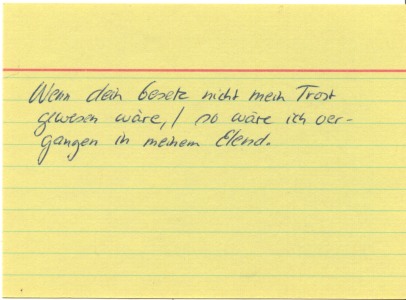 Wenn dein Gesetz nicht mein Trost
gewesen wäre, / so wäre ich ver-
gangen in meinem Elend.